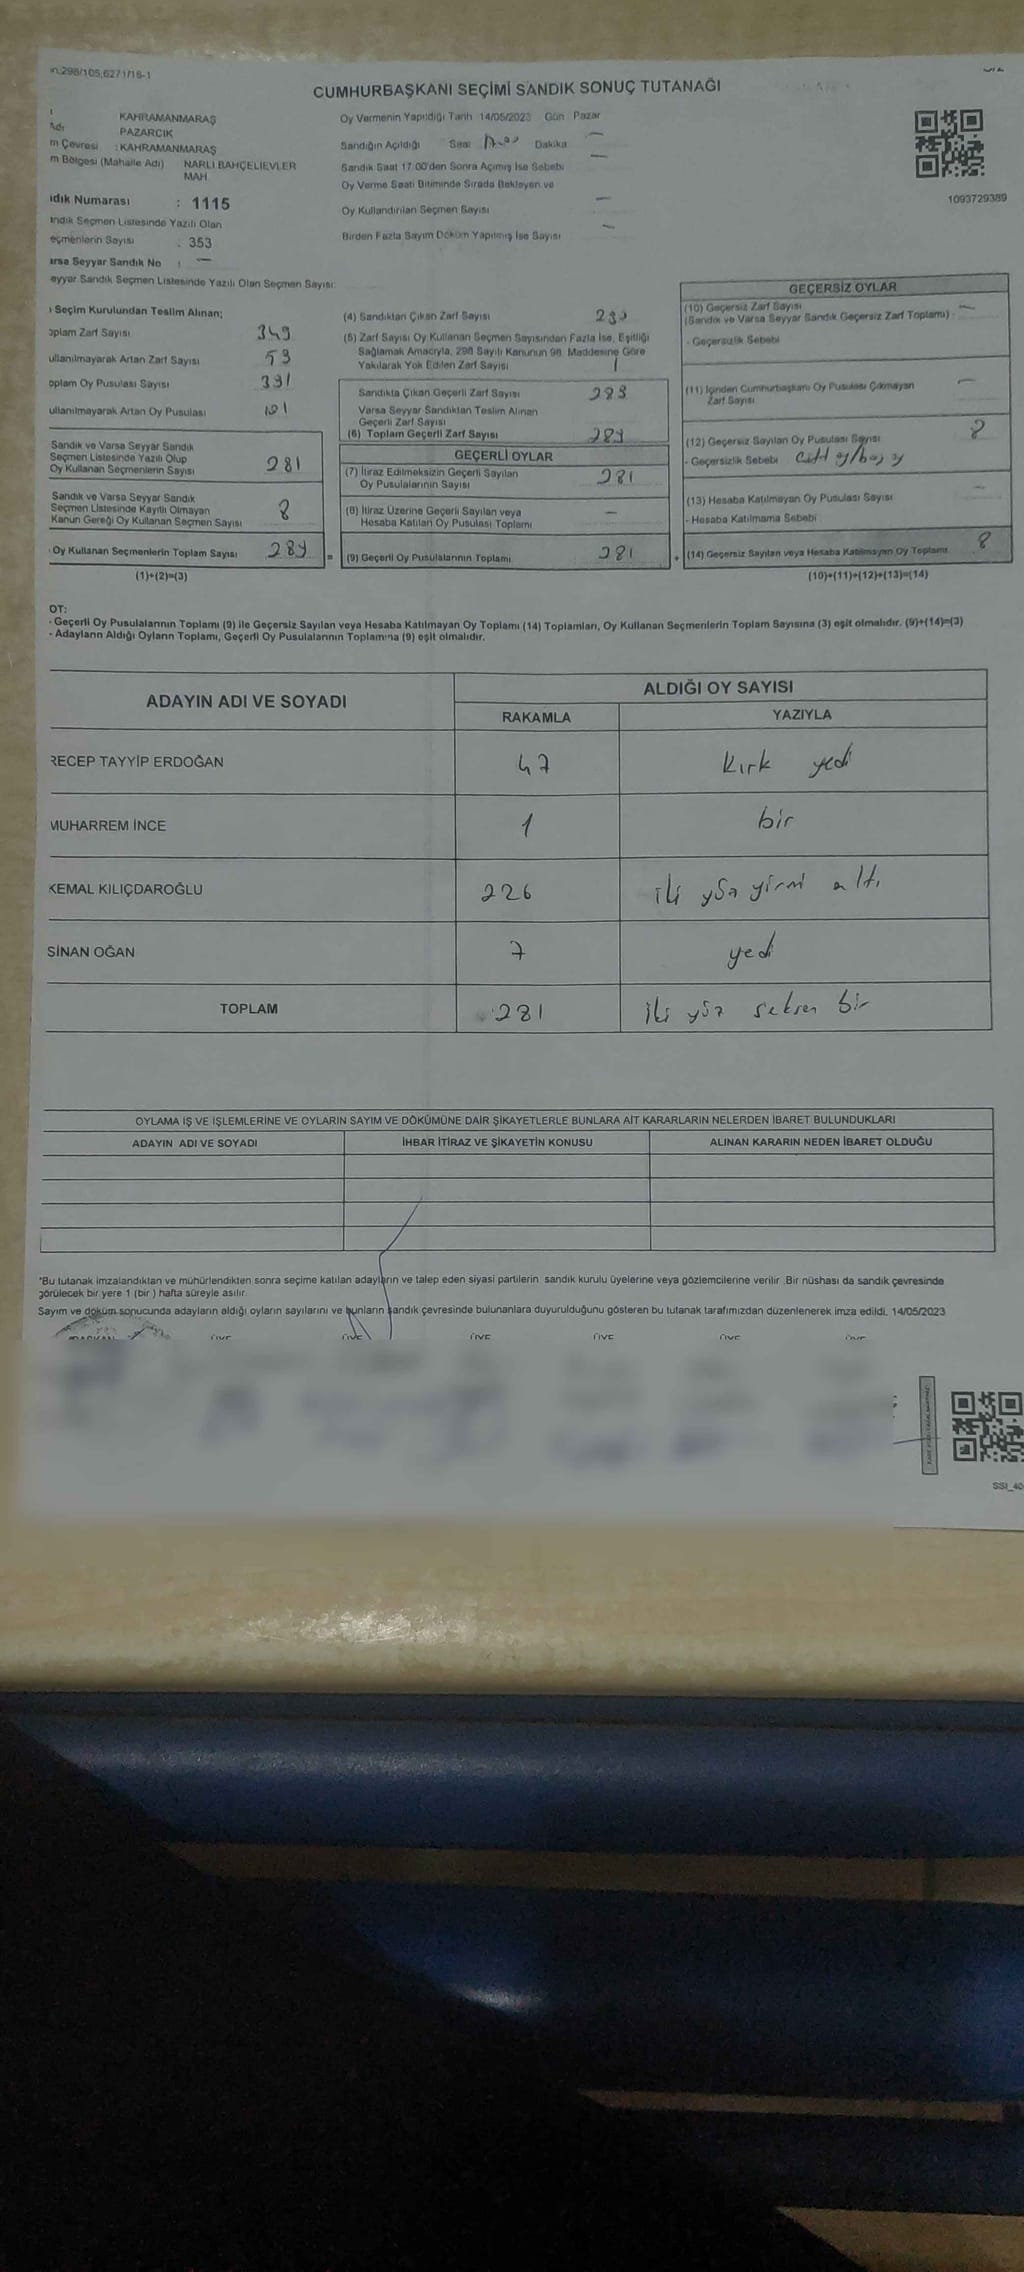 298/105,6271/18-1
CUMHURBAŞKANI SEÇİMİ SANDIK SONUÇ TUTANAĞI
KAHRAMANMARAŞ
Adı PAZARCIK
m Çevresi : KAHRAMANMARAŞ
m Bölgesi (Mahalle Adı) NARLI BAHÇELİEVLER
MAH
ıdık Numarası : 1115
andık Seçmen Listesinde Yazılı Olan
eçmenlerin Sayısı : 353
arsa Seyyar Sandık No : —
eyyar Sandık Seçmen Listesinde Yazılı Olan Seçmen Sayısı:
Oy Vermenin Yapıldığı Tarih 14/05/2023 Gün Pazar
Sandığın Açıldığı Saat Dakika —
Sandık Saat 17:00'den Sonra Açılmış İse Sebebi —
Oy Verme Saati Bitiminde Sırada Bekleyen ve
Oy Kullandırılan Seçmen Sayısı —
Birden Fazla Sayım Döküm Yapılmış İse Sayısı —
1093729389
ı Seçim Kurulundan Teslim Alınan;
oplam Zarf Sayısı 349
ullanılmayarak Artan Zarf Sayısı 59
oplam Oy Pusulası Sayısı 391
ullanılmayarak Artan Oy Pusulası 101
Sandık ve Varsa Seyyar Sandık
Seçmen Listesinde Yazılı Olup
Oy Kullanan Seçmenlerin Sayısı 281
Sandık ve Varsa Seyyar Sandık
Seçmen Listesinde Kayıtlı Olmayan
Kanun Gereği Oy Kullanan Seçmen Sayısı 8
Oy Kullanan Seçmenlerin Toplam Sayısı 289 =
(1)+(2)=(3)
(4) Sandıktan Çıkan Zarf Sayısı 290
(5) Zarf Sayısı Oy Kullanan Seçmen Sayısından Fazla İse, Eşitliği
Sağlamak Amacıyla, 298 Sayılı Kanunun 98. Maddesine Göre
Yakılarak Yok Edilen Zarf Sayısı 1
Sandıkta Çıkan Geçerli Zarf Sayısı 289
Varsa Seyyar Sandıktan Teslim Alınan
Geçerli Zarf Sayısı
(6) Toplam Geçerli Zarf Sayısı 289
GEÇERLİ OYLAR
(7) İtiraz Edilmeksizin Geçerli Sayılan
Oy Pusulalarının Sayısı 281
(8) İtiraz Üzerine Geçerli Sayılan veya
Hesaba Katılan Oy Pusulası Toplamı —
(9) Geçerli Oy Pusulalarının Toplamı 281 +
GEÇERSİZ OYLAR
(10) Geçersiz Zarf Sayısı
(Sandık ve Varsa Seyyar Sandık Geçersiz Zarf Toplamı) : —
- Geçersizlik Sebebi
(11) İçinden Cumhurbaşkanı Oy Pusulası Çıkmayan
Zarf Sayısı —
(12) Geçersiz Sayılan Oy Pusulası Sayısı 8
- Geçersizlik Sebebi Çift oy/boş oy
(13) Hesaba Katılmayan Oy Pusulası Sayısı —
- Hesaba Katılmama Sebebi
(14) Geçersiz Sayılan veya Hesaba Katılmayan Oy Toplamı 8
(10)+(11)+(12)+(13)=(14)
OT:
- Geçerli Oy Pusulalarının Toplamı (9) ile Geçersiz Sayılan veya Hesaba Katılmayan Oy Toplamı (14) Toplamları, Oy Kullanan Seçmenlerin Toplam Sayısına (3) eşit olmalıdır. (9)+(14)=(3)
- Adayların Aldığı Oyların Toplamı, Geçerli Oy Pusulalarının Toplamına (9) eşit olmalıdır.
ADAYIN ADI VE SOYADI ALDIĞI OY SAYISI
RAKAMLA YAZIYLA
RECEP TAYYİP ERDOĞAN 47 kırk yedi
MUHARREM İNCE 1 bir
KEMAL KILIÇDAROĞLU 226 iki yüz yirmi altı
SİNAN OĞAN 7 yedi
TOPLAM 281 iki yüz seksen bir
OYLAMA İŞ VE İŞLEMLERİNE VE OYLARIN SAYIM VE DÖKÜMÜNE DAİR ŞİKAYETLERLE BUNLARA AİT KARARLARIN NELERDEN İBARET BULUNDUKLARI
ADAYIN ADI VE SOYADI İHBAR İTİRAZ VE ŞİKAYETİN KONUSU ALINAN KARARIN NEDEN İBARET OLDUĞU
*Bu tutanak imzalandıktan ve mühürlendikten sonra seçime katılan adayların ve talep eden siyasi partilerin sandık kurulu üyelerine veya gözlemcilerine verilir. Bir nüshası da sandık çevresinde
görülecek bir yere 1 (bir) hafta süreyle asılır.
Sayım ve döküm sonucunda adayların aldığı oyların sayılarını ve bunların sandık çevresinde bulunanlara duyurulduğunu gösteren bu tutanak tarafımızdan düzenlenerek imza edildi. 14/05/2023
BAŞKAN ÜYE ÜYE ÜYE ÜYE ÜYE ÜYE
SSI_40